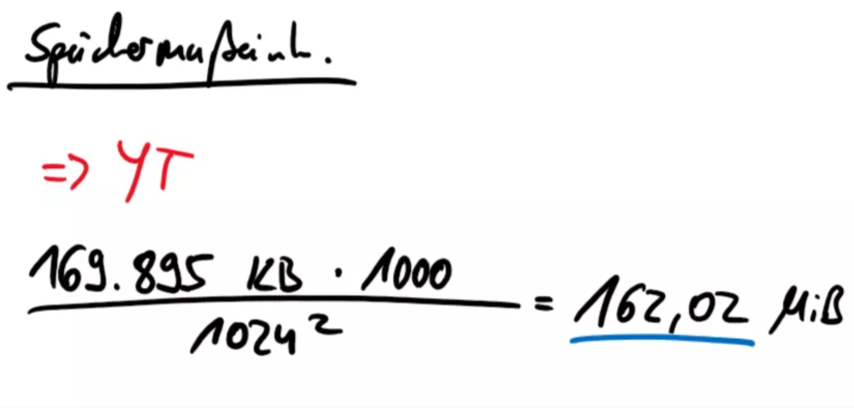 Speichermaßeinh.
=> YT
169.895 KB · 1000
1024²
= 162,02 MiB